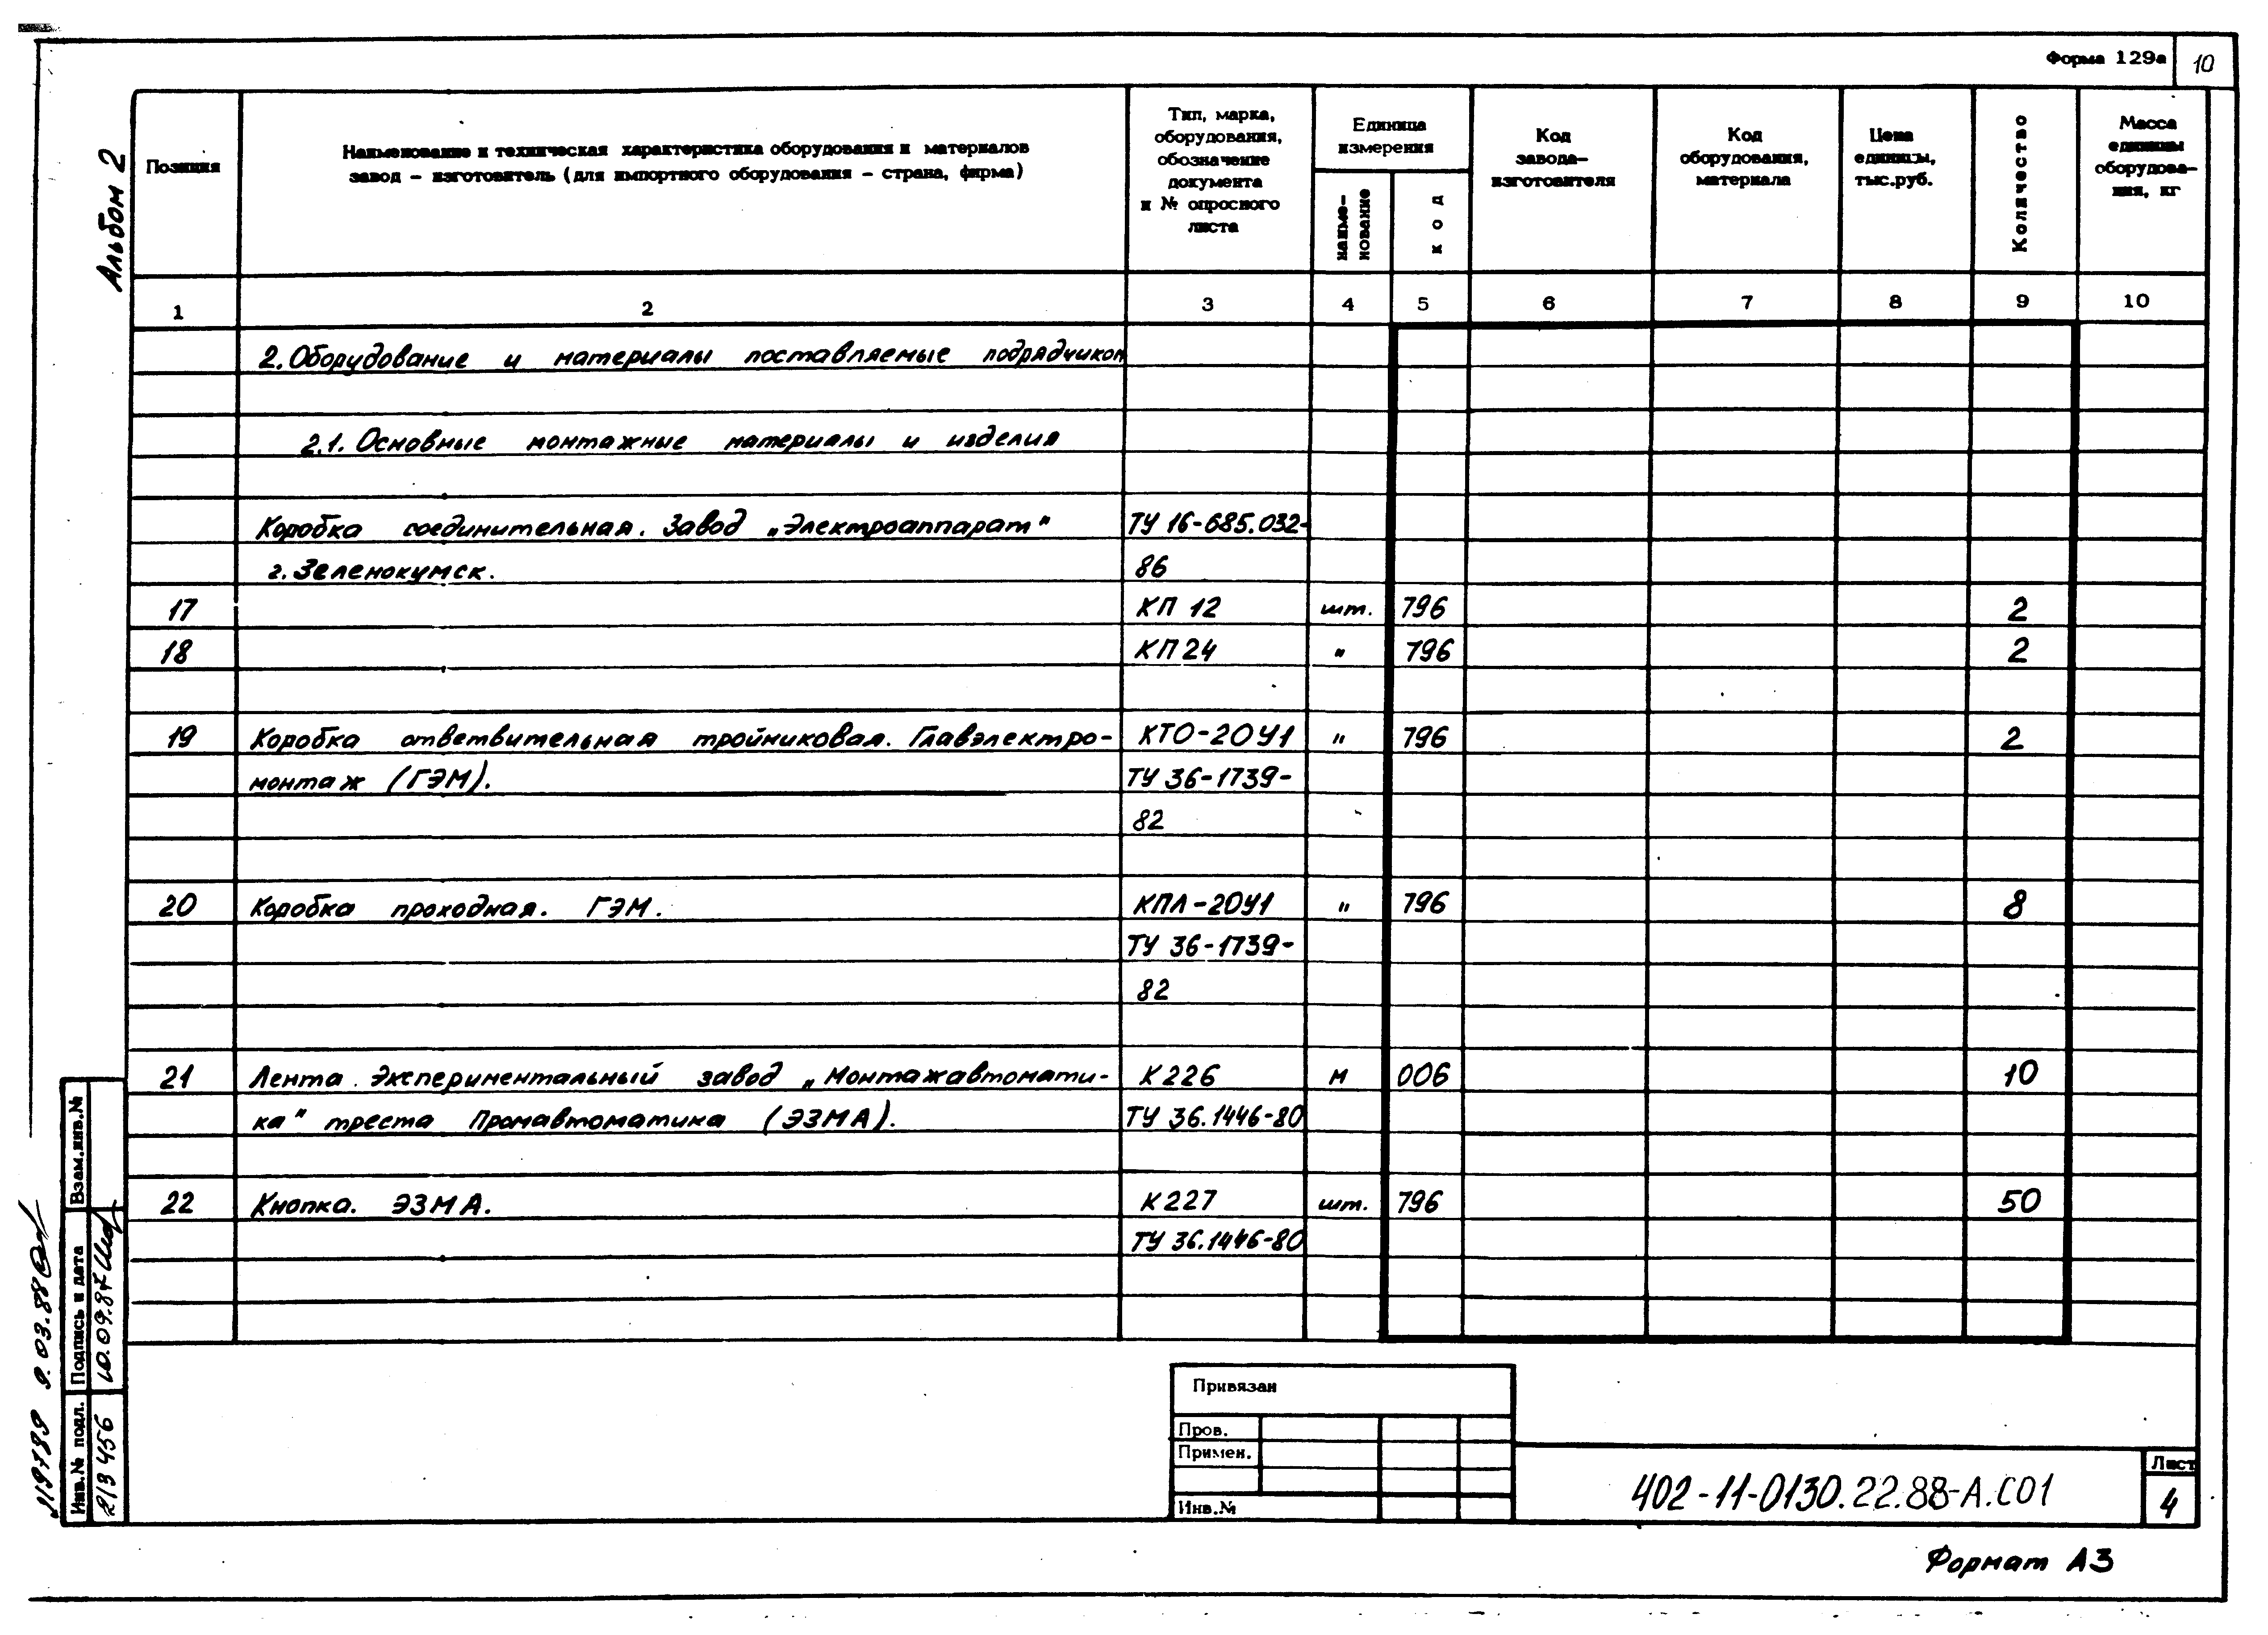 Форма 129а 10
Альбом 2
Позиция
Наименование и техническая характеристика оборудования и материалов
завод – изготовитель (для импортного оборудования – страна, фирма)
Тип, марка,
оборудования,
обозначение
документа
и № опросного
листа
Единица
измерения
наиме-
нование
код
Код
завода-
изготовителя
Код
оборудования,
материала
Цена
единицы,
тыс.руб.
Количество
Масса
единицы
оборудова-
ния, кг
1 2 3 4 5 6 7 8 9 10
2. Оборудование и материалы поставляемые подрядчиком
2.1. Основные монтажные материалы и изделия
Коробка соединительная. Завод „Электроаппарат" ТУ 16-685.032-
г. Зеленокумск. 86
17 КП 12 шт. 796 2
18 КП 24 " 796 2
19 Коробка ответвительная тройниковая. Главэлектро- КТО-20У1 " 796 2
монтаж (ГЭМ). ТУ 36-1739-
82
20 Коробка проходная. ГЭМ. КПЛ-20У1 " 796 8
ТУ 36-1739-
82
21 Лента. Экспериментальный завод „Монтажавтомати- К226 м 006 10
ка" треста Промавтоматика (ЭЗМА). ТУ 36.1446-80
22 Кнопка. ЭЗМА. К227 шт. 796 50
ТУ 36.1446-80
Взам.инв.№
Подпись и дата
10.09.87
Инв.№ подл.
213456
219789 9.03.88
Привязан
Пров.
Примен.
Инв.№
402-11-0130.22.88-А.СО1
Лист
4
Формат А3